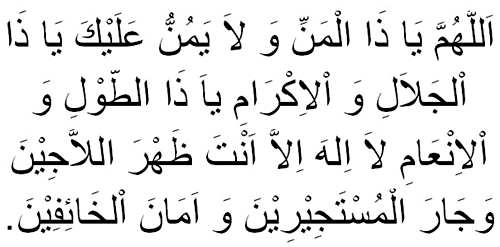 اَللَّهُمَّ يَا ذَا الْمَنِّ وَ لاَ يَمُنُّ عَلَيْكَ يَا ذَا
اْلجَلاَلِ وَ اْلاِكْرَامِ ياَ ذَا الطَّوْلِ وَ
اْلاِنْعَامِ لاَ اِلهَ اِلاَّ اَنْتَ ظَهْرَ اللاَّجِيْنَ
وَجَارَ الْمُسْتَجِيْرِيْنَ وَ اَمَانَ اْلخَائِفِيْنَ.